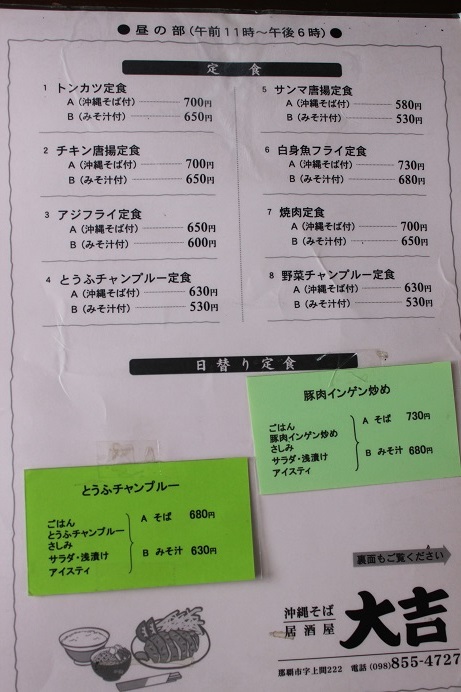 ● 昼の部(午前11時〜午後6時) ●
定 食
1 トンカツ定食
A (沖縄そば付) 700円
B (みそ汁付) 650円
2 チキン唐揚定食
A (沖縄そば付) 700円
B (みそ汁付) 650円
3 アジフライ定食
A (沖縄そば付) 650円
B (みそ汁付) 600円
4 とうふチャンプルー定食
A (沖縄そば付) 630円
B (みそ汁付) 530円
5 サンマ唐揚定食
A (沖縄そば付) 580円
B (みそ汁付) 530円
6 白身魚フライ定食
A (沖縄そば付) 730円
B (みそ汁付) 680円
7 焼肉定食
A (沖縄そば付) 700円
B (みそ汁付) 650円
8 野菜チャンプルー定食
A (沖縄そば付) 630円
B (みそ汁付) 530円
日替り定食
豚肉インゲン炒め
ごはん
豚肉インゲン炒め
さしみ
サラダ・浅漬け
アイスティ
A そば 730円
B みそ汁 680円
とうふチャンプルー
ごはん
とうふチャンプルー
さしみ
サラダ・浅漬け
アイスティ
A そば 680円
B みそ汁 630円
裏面もご覧ください
沖縄そば
居酒屋
大吉
那覇市字上間222 電話 (098)855-4727